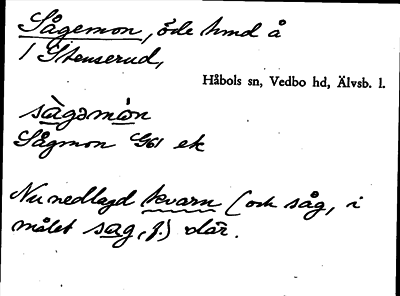 Sågemon, öde hmd å
1 Stenserud,
Håbols sn, Vedbo hd, Älvsb. l.
sàgəmòn
Sågmon G61 ek
Nu nedlagd kvarn (och såg, i
målet sag, f.) där.